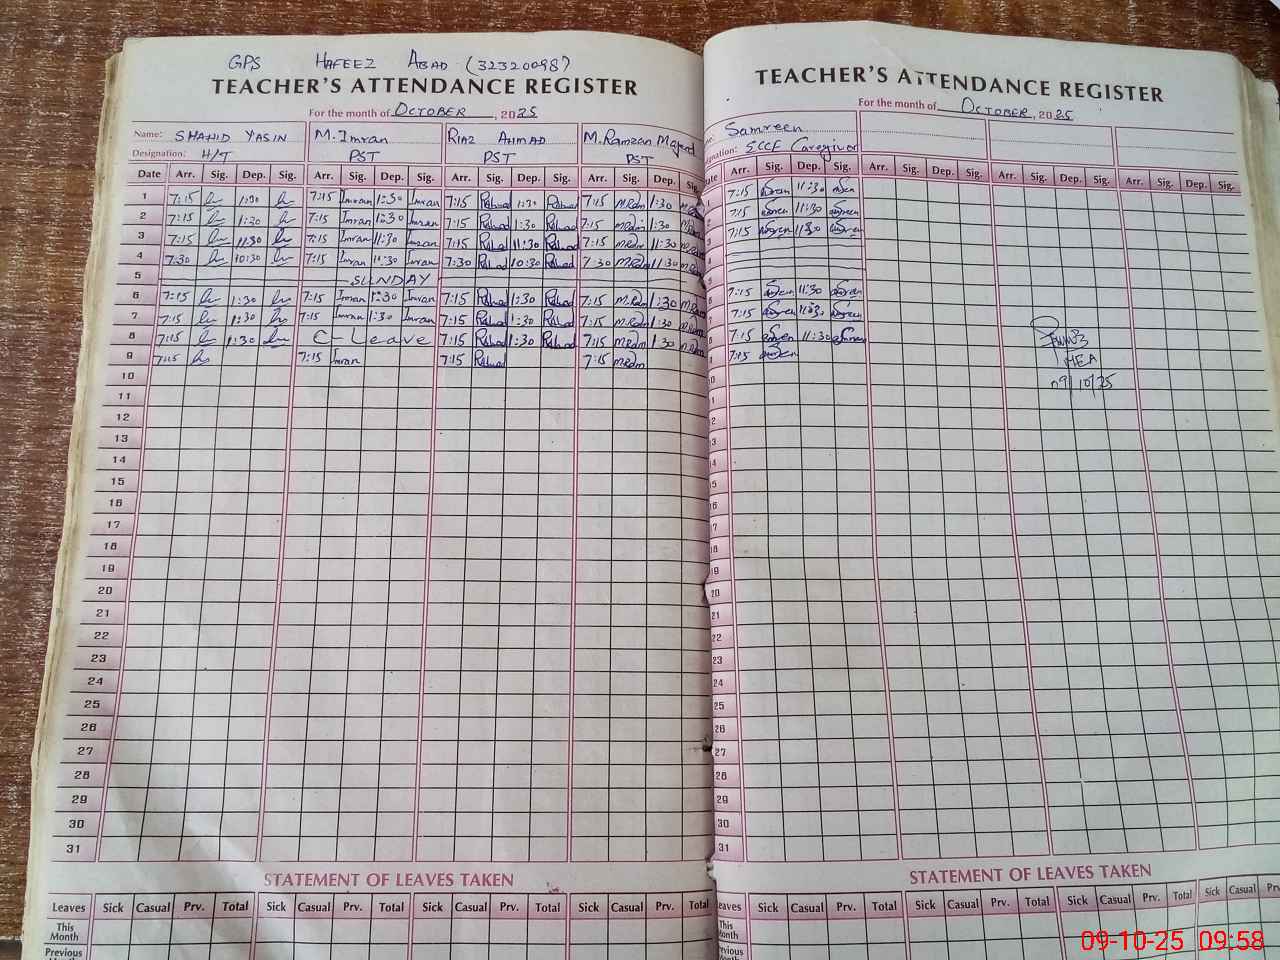 GPS HAFEEZ ABAD (32320098)
TEACHER'S ATTENDANCE REGISTER
For the month of OCTOBER, 2025
Name: SHAHID YASIN M. Imran RIAZ AHMAD M. Ramzan Majeed
Designation: H/T PST PST PST
Date Arr. Sig. Dep. Sig. Arr. Sig. Dep. Sig. Arr. Sig. Dep. Sig. Arr. Sig. Dep. Sig.
1 7:15 1:30 7:15 Imran 1:30 Imran 7:15 1:30 7:15 1:30
2 7:15 1:30 7:15 Imran 1:30 Imran 7:15 1:30 7:15 1:30
3 7:15 11:30 7:15 Imran 11:30 Imran 7:15 11:30 7:15 11:30
4 7:30 10:30 7:15 Imran Imran 7:30 10:30 7:30 11:30
5 SUNDAY
6 7:15 1:30 7:15 Imran 1:30 Imran 7:15 1:30 7:15 1:30
7 7:15 1:30 7:15 Imran 1:30 Imran 7:15 1:30 7:15 1:30
8 7:15 1:30 C-Leave 7:15 1:30 7:15 1:30
9 7:15 7:15 Imran 7:15 7:15
10
11
12
13
14
15
16
17
18
19
20
21
22
23
24
25
26
27
28
29
30
31
STATEMENT OF LEAVES TAKEN
Leaves Sick Casual Prv. Total Sick Casual Prv. Total Sick Casual Prv. Total Sick Casual Prv. Total
This
Month
Previous
TEACHER'S ATTENDANCE REGISTER
For the month of OCTOBER, 2025
Samreen
SCCF Caregiver
Arr. Sig. Dep. Sig. Arr. Sig. Dep. Sig. Arr. Sig. Dep. Sig. Arr. Sig. Dep. Sig.
7:15 11:30
7:15 11:30
7:15 11:30
7:15 11:30
7:15 11:30
7:15 11:30
7:15
MEA
09/10/25
12
13
14
15
16
17
18
19
20
21
22
23
24
25
26
27
28
29
30
31
STATEMENT OF LEAVES TAKEN
Leaves Sick Casual Prv. Total Sick Casual Prv. Total Sick Casual Prv. Total Sick Casual
This
Month
Previous
09-10-25 09:58